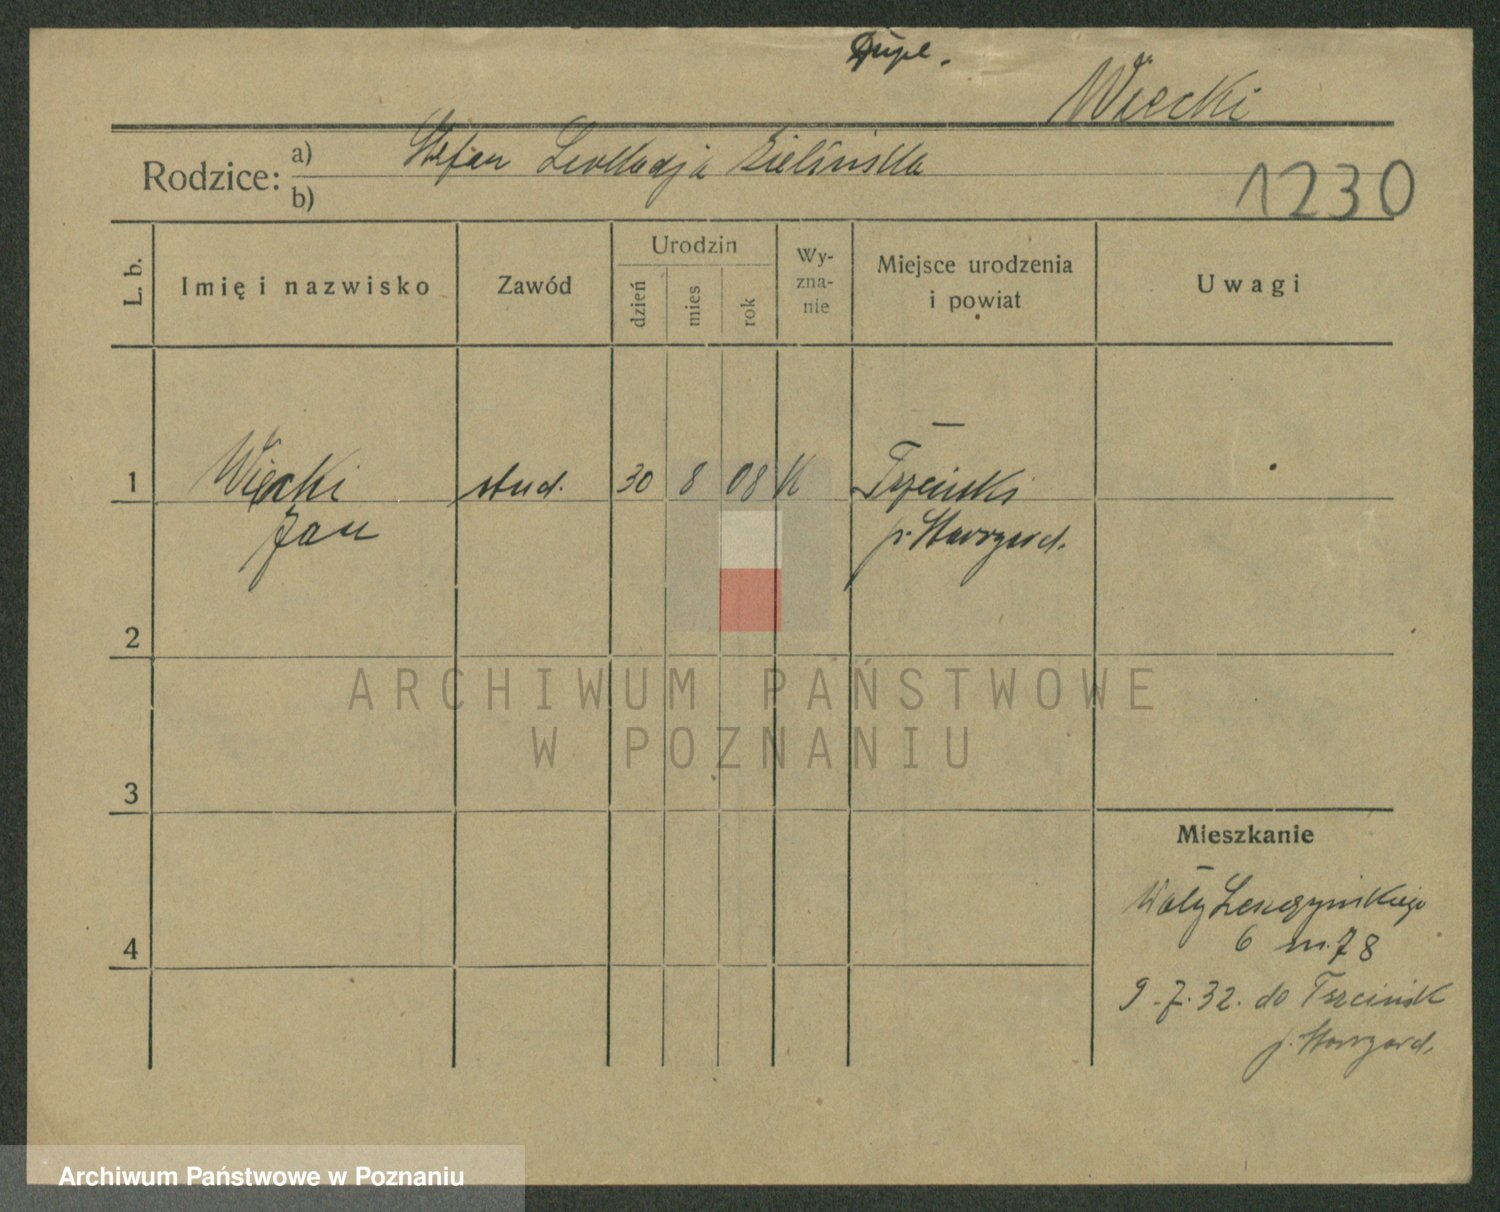 Dupl.
Wiecki
Rodzice: a) Stefan Leokadja Zielińska
b)
1230
L. b.
Imię i nazwisko
Zawód
Urodzin
dzień
mies
rok
Wy-
zna-
nie
Miejsce urodzenia
i powiat
Uwagi
1 Wiecki stud. 30 8 08 K Trzcińsk
Jan p. Starogard.
2
ARCHIWUM PAŃSTWOWE
W POZNANIU
3
Mieszkanie
Wały Leszczyńskiego
4 6 m. 78
9.7.32. do Trzcińsk
p. Starogard.
Archiwum Państwowe w Poznaniu